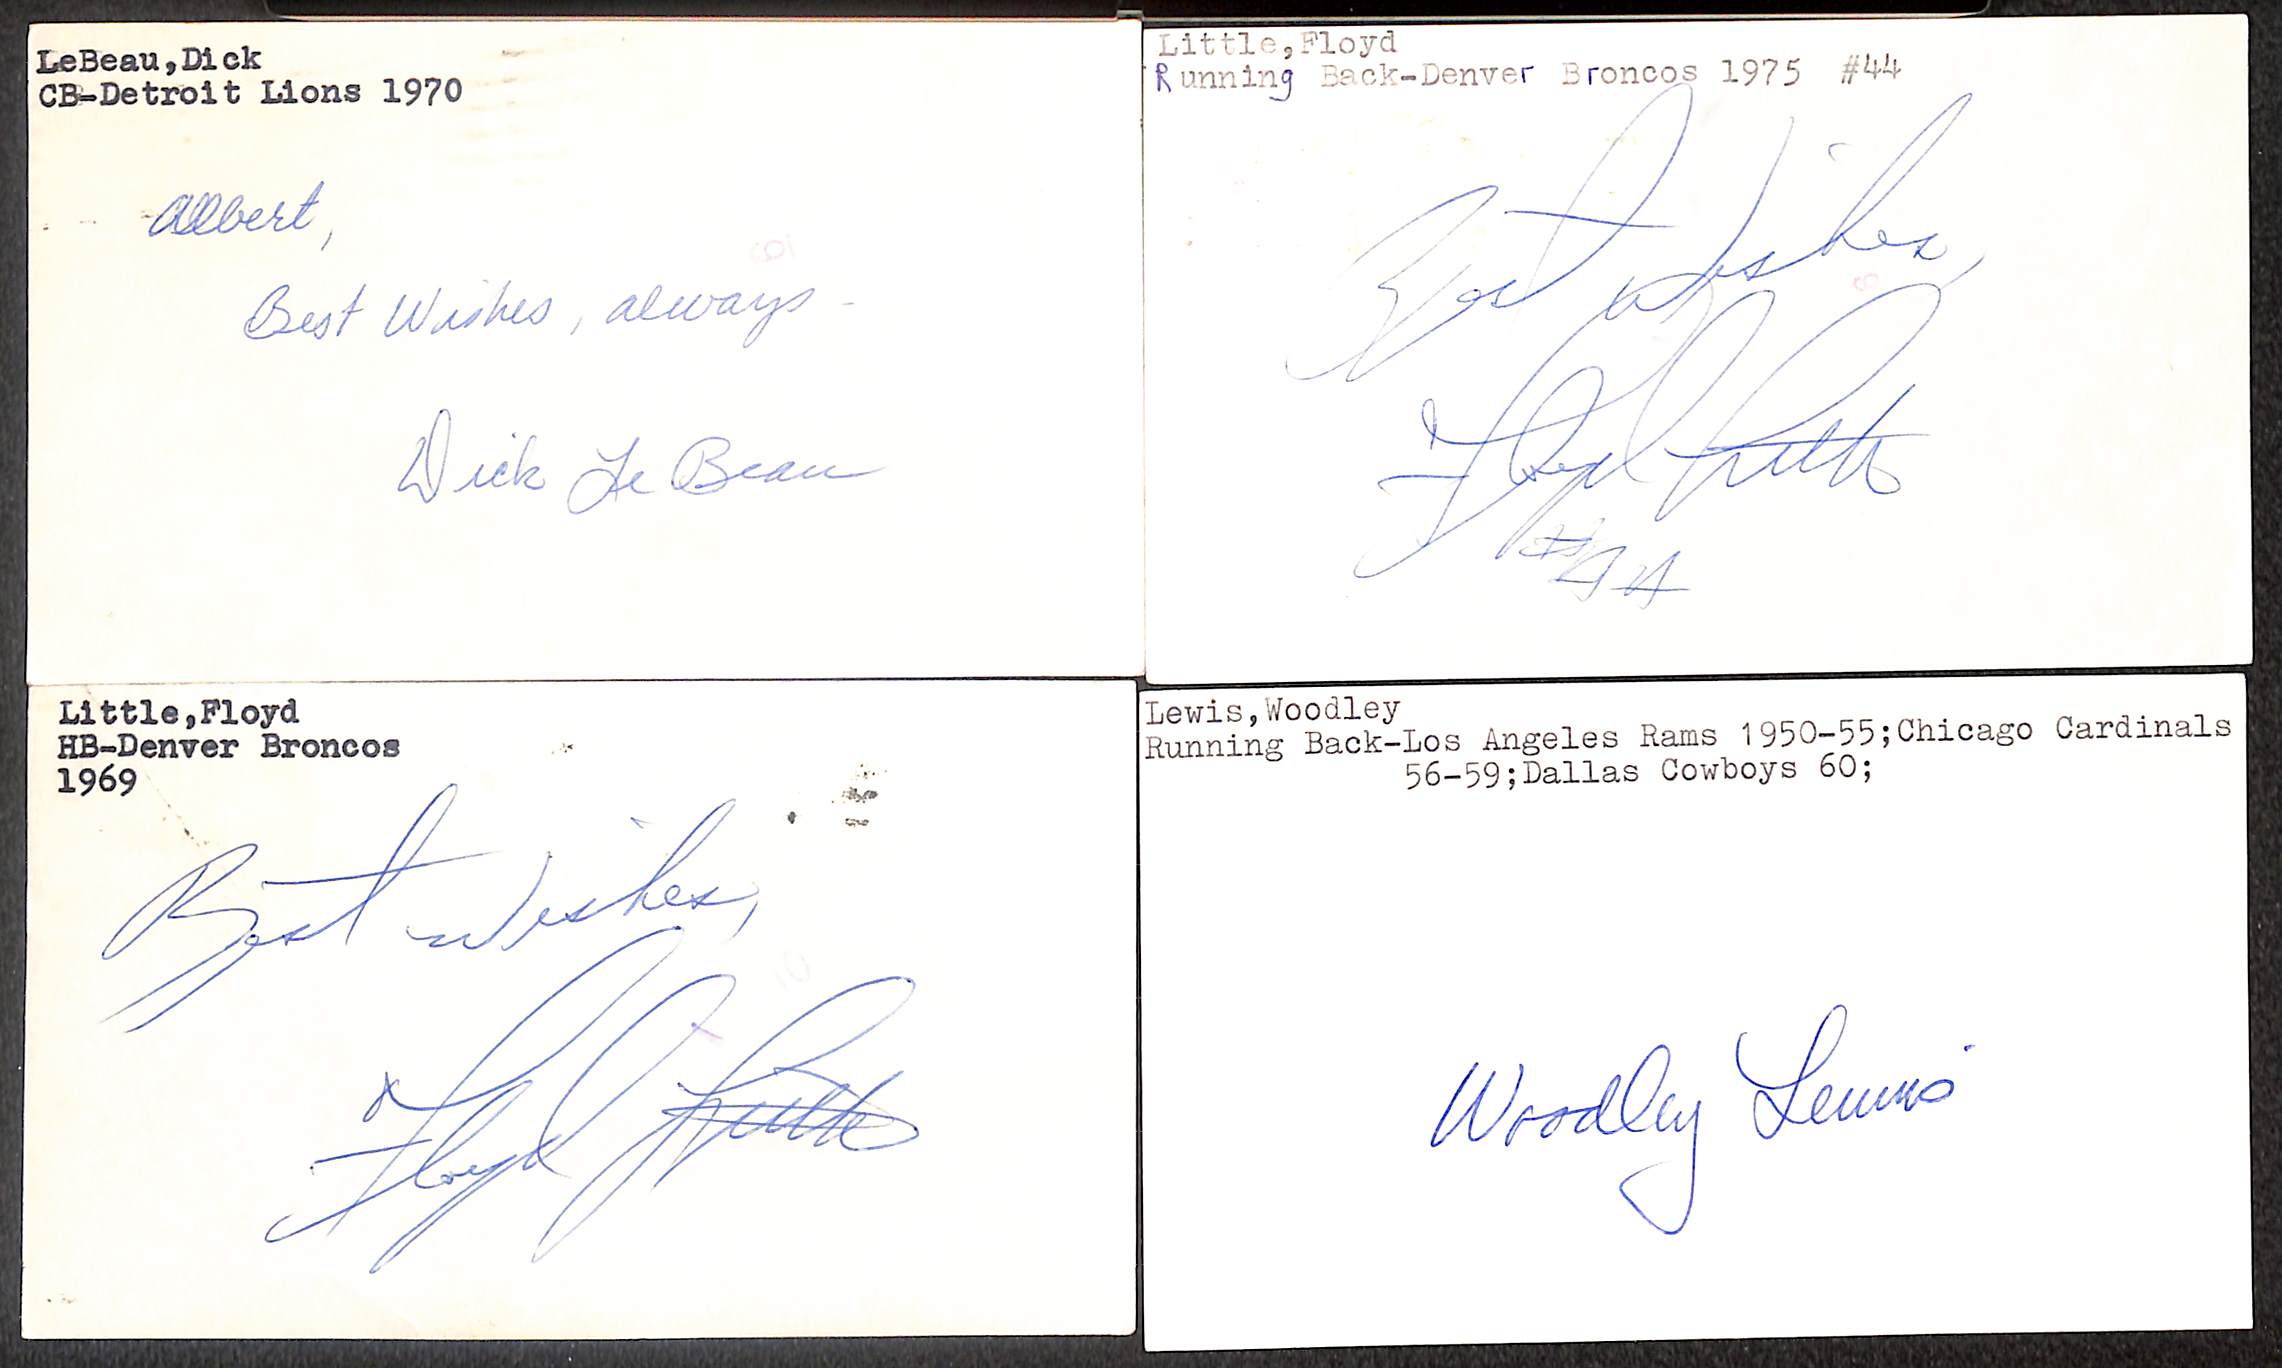 LeBeau,Dick
CB-Detroit Lions 1970
Albert,
Best Wishes, always -
Dick LeBeau
Little,Floyd
Running Back-Denver Broncos 1975 #44
Best Wishes,
Floyd Little
#44
Little,Floyd
HB-Denver Broncos
1969
Best Wishes,
Floyd Little
Lewis,Woodley
Running Back-Los Angeles Rams 1950-55;Chicago Cardinals
56-59;Dallas Cowboys 60;
Woodley Lewis